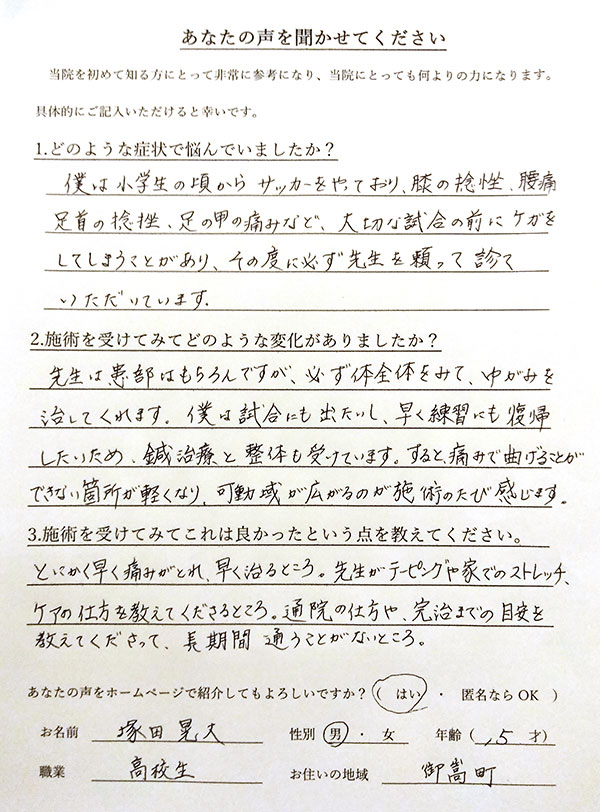 あなたの声を聞かせてください
当院を初めて知る方にとって非常に参考になり、当院にとっても何よりの力になります。
具体的にご記入いただけると幸いです。
1.どのような症状で悩んでいましたか？
僕は小学生の頃からサッカーをやっており、膝の捻挫、腰痛
足首の捻挫、足の甲の痛みなど、大切な試合の前にケガを
してしまうことがあり、その度に必ず先生を頼って診て
いただいています.
2.施術を受けてみてどのような変化がありましたか？
先生は患部はもちろんですが、必ず体全体をみて、ゆがみを
治してくれます。僕は試合にも出たいし、早く練習にも復帰
したいため、鍼治療と整体も受けています。すると、痛みで曲げることが
できない箇所が軽くなり、可動域が広がるのが施術のたび感じます。
3.施術を受けてみてこれは良かったという点を教えてください。
とにかく早く痛みがとれ、早く治るところ。先生がテーピングや家でのストレッチ、
ケアの仕方を教えてくださるところ。通院の仕方や、完治までの目安を
教えてくださって、長期間通うことがないところ。
あなたの声をホームページで紹介してもよろしいですか？（ はい ・ 匿名ならOK ）
お名前 塚田晃大 性別 男 ・ 女 年齢（ 15 才）
職業 高校生 お住いの地域 御嵩町